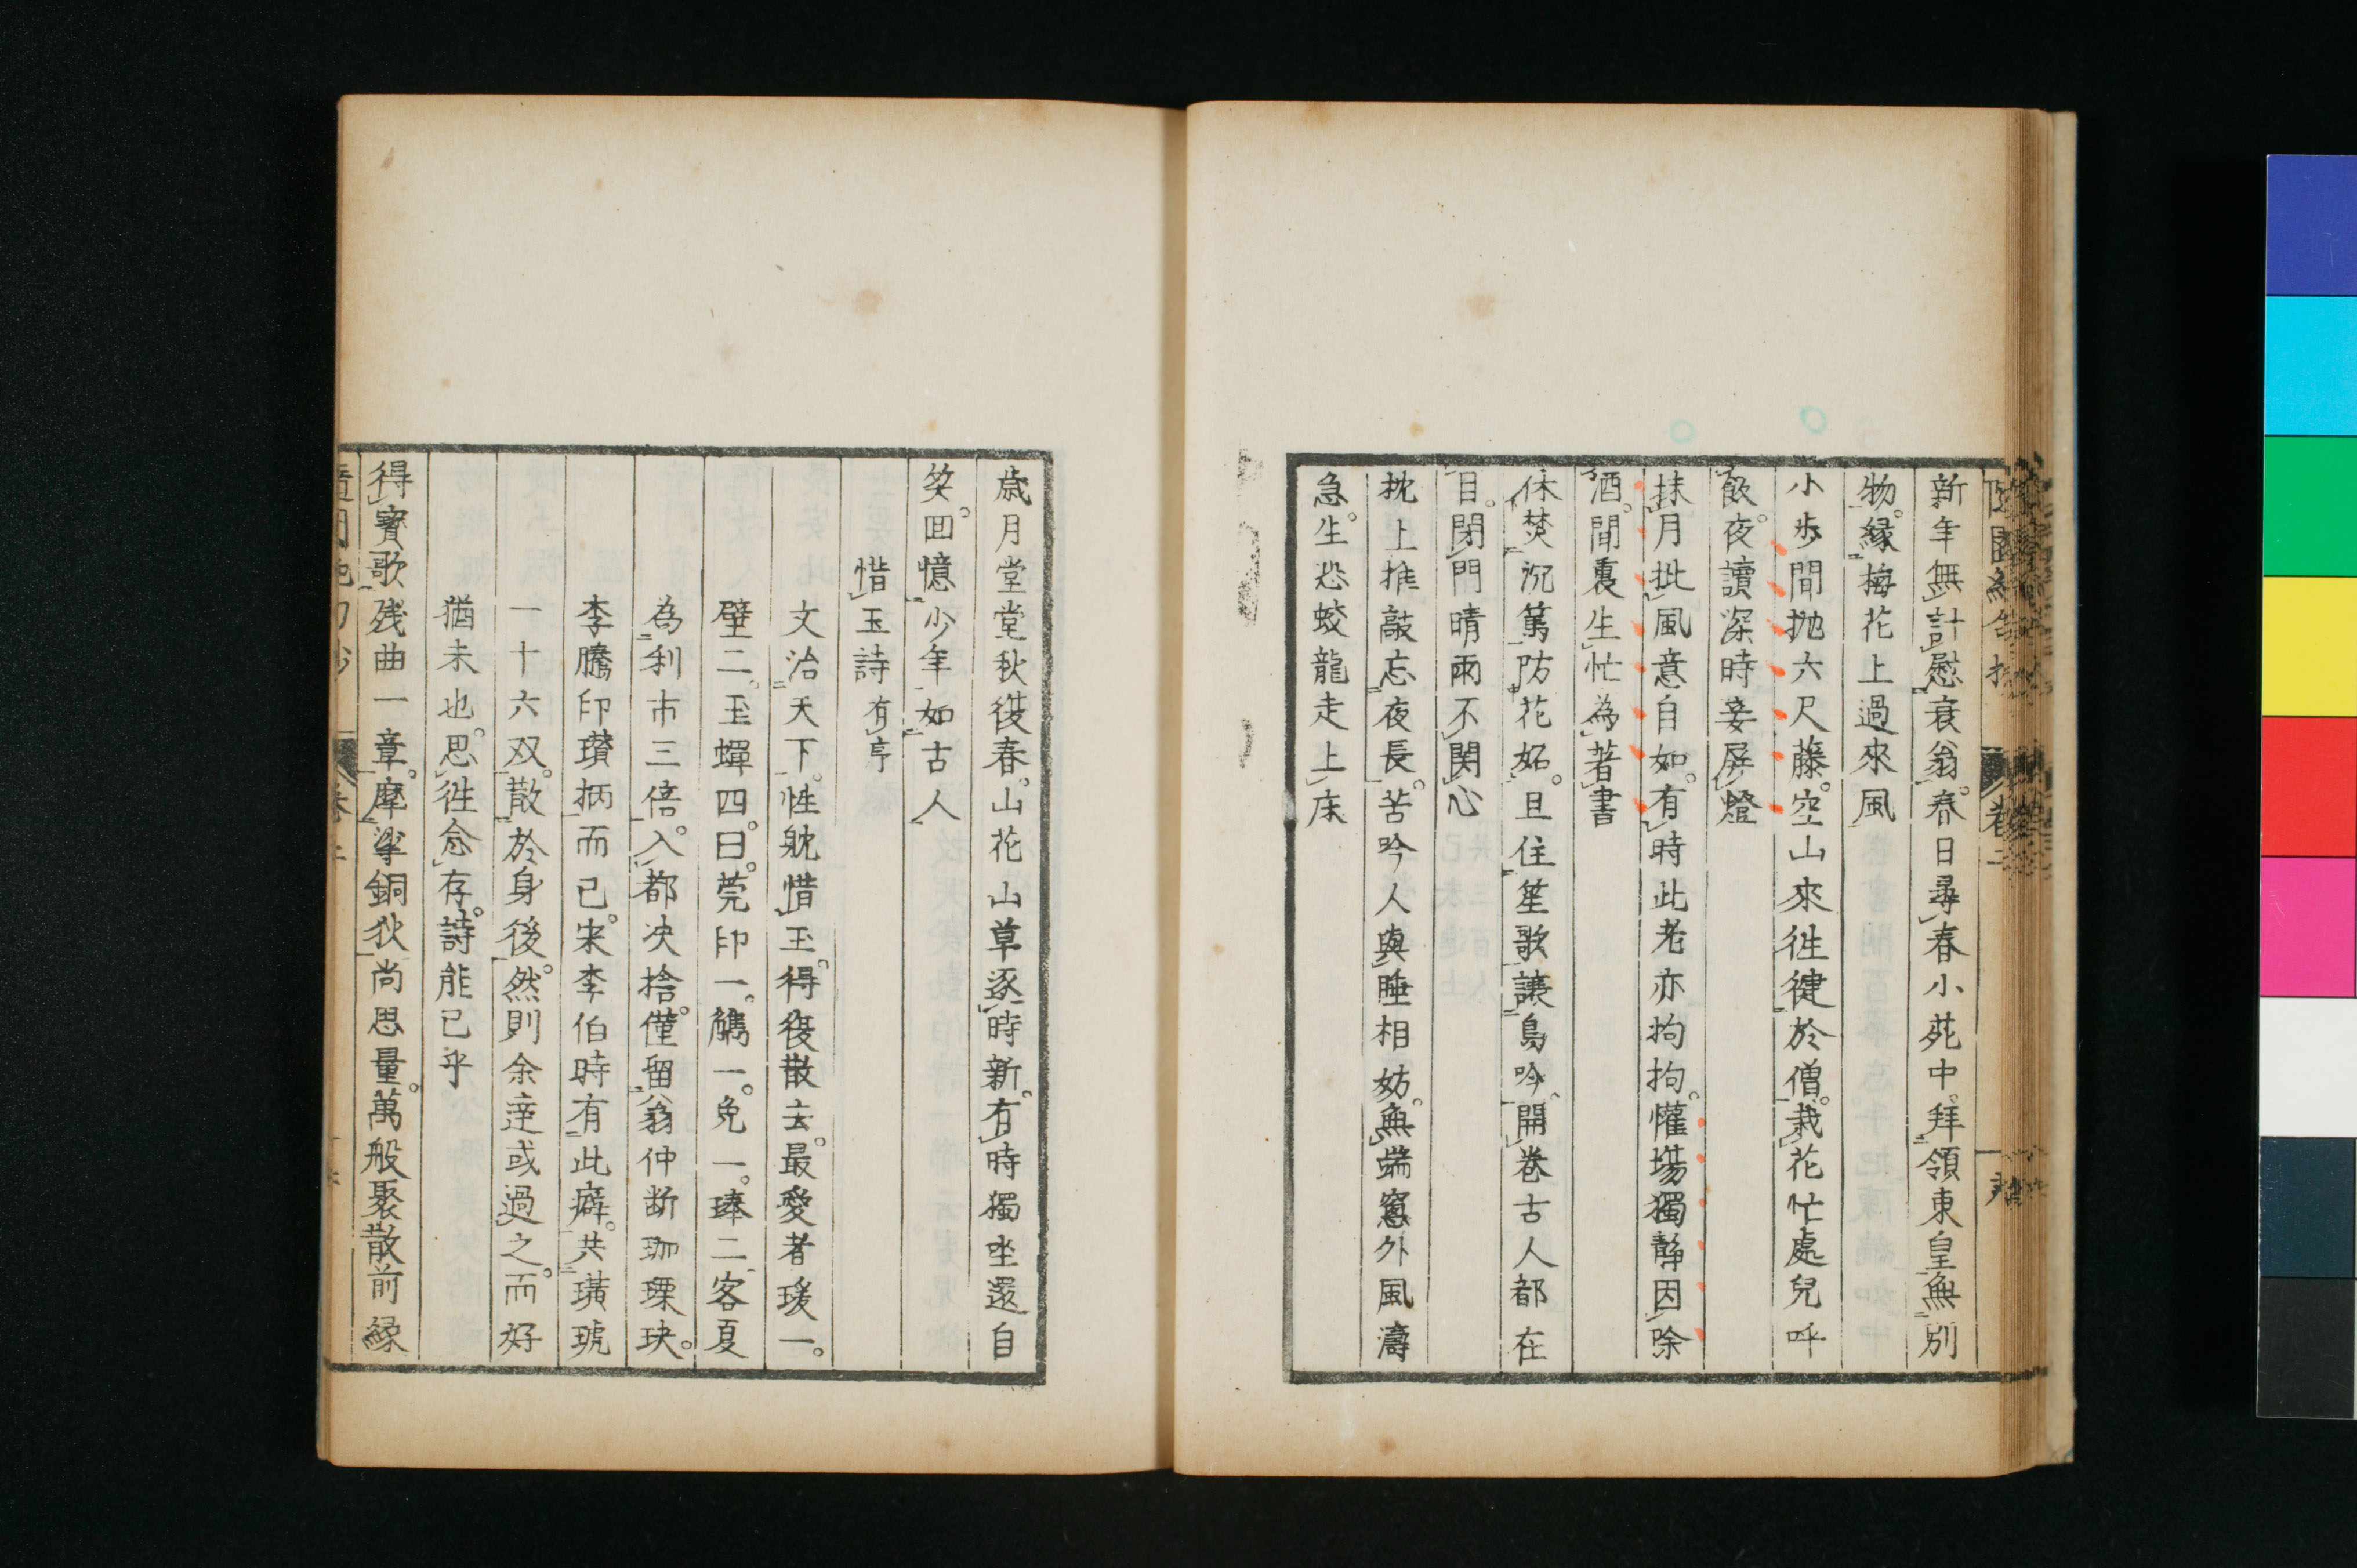 新年無計慰衰翁。春日尋春小苑中。拜領東皇無別
物。縁梅花上過來風
小步間抛六尺藤。空山來徃健於僧。栽花忙處兒呼
飲。夜讀深時妾屏燈
抹月批風意自如。有時此老亦拘拘。懽塲獨靜因除
酒。間裏生忙為著書
休焚沉篤防花妬。且住笙歌讓鳥吟。開巻古人都在
目。閉門晴雨不関心
枕上推敲忘夜長。苦吟人與睡相妨。無端窓外風濤
急。生恐蛟龍走上床
巻二
歳月堂堂秋復春。山花山草逐時新。有時獨坐還自
笑。回憶少年如古人
惜玉詩有序
文治天下。性躭惜玉。得復散去。最愛者瑗一。
璧二。玉蟬四。曰。莞印一。觽一。兔一。琫二客夏
為利市三倍。入都決捨。僅留翁仲断珈瓅玦。
李騰印瓚柄而已。宋李伯時有此癖。共璜琥
一十六双。散於身後。然則余逹或過之。而好
猶未也。思徃念存。詩能已乎
得寳歌残曲一章。摩挲銅狄尚思量。萬般聚散前縁